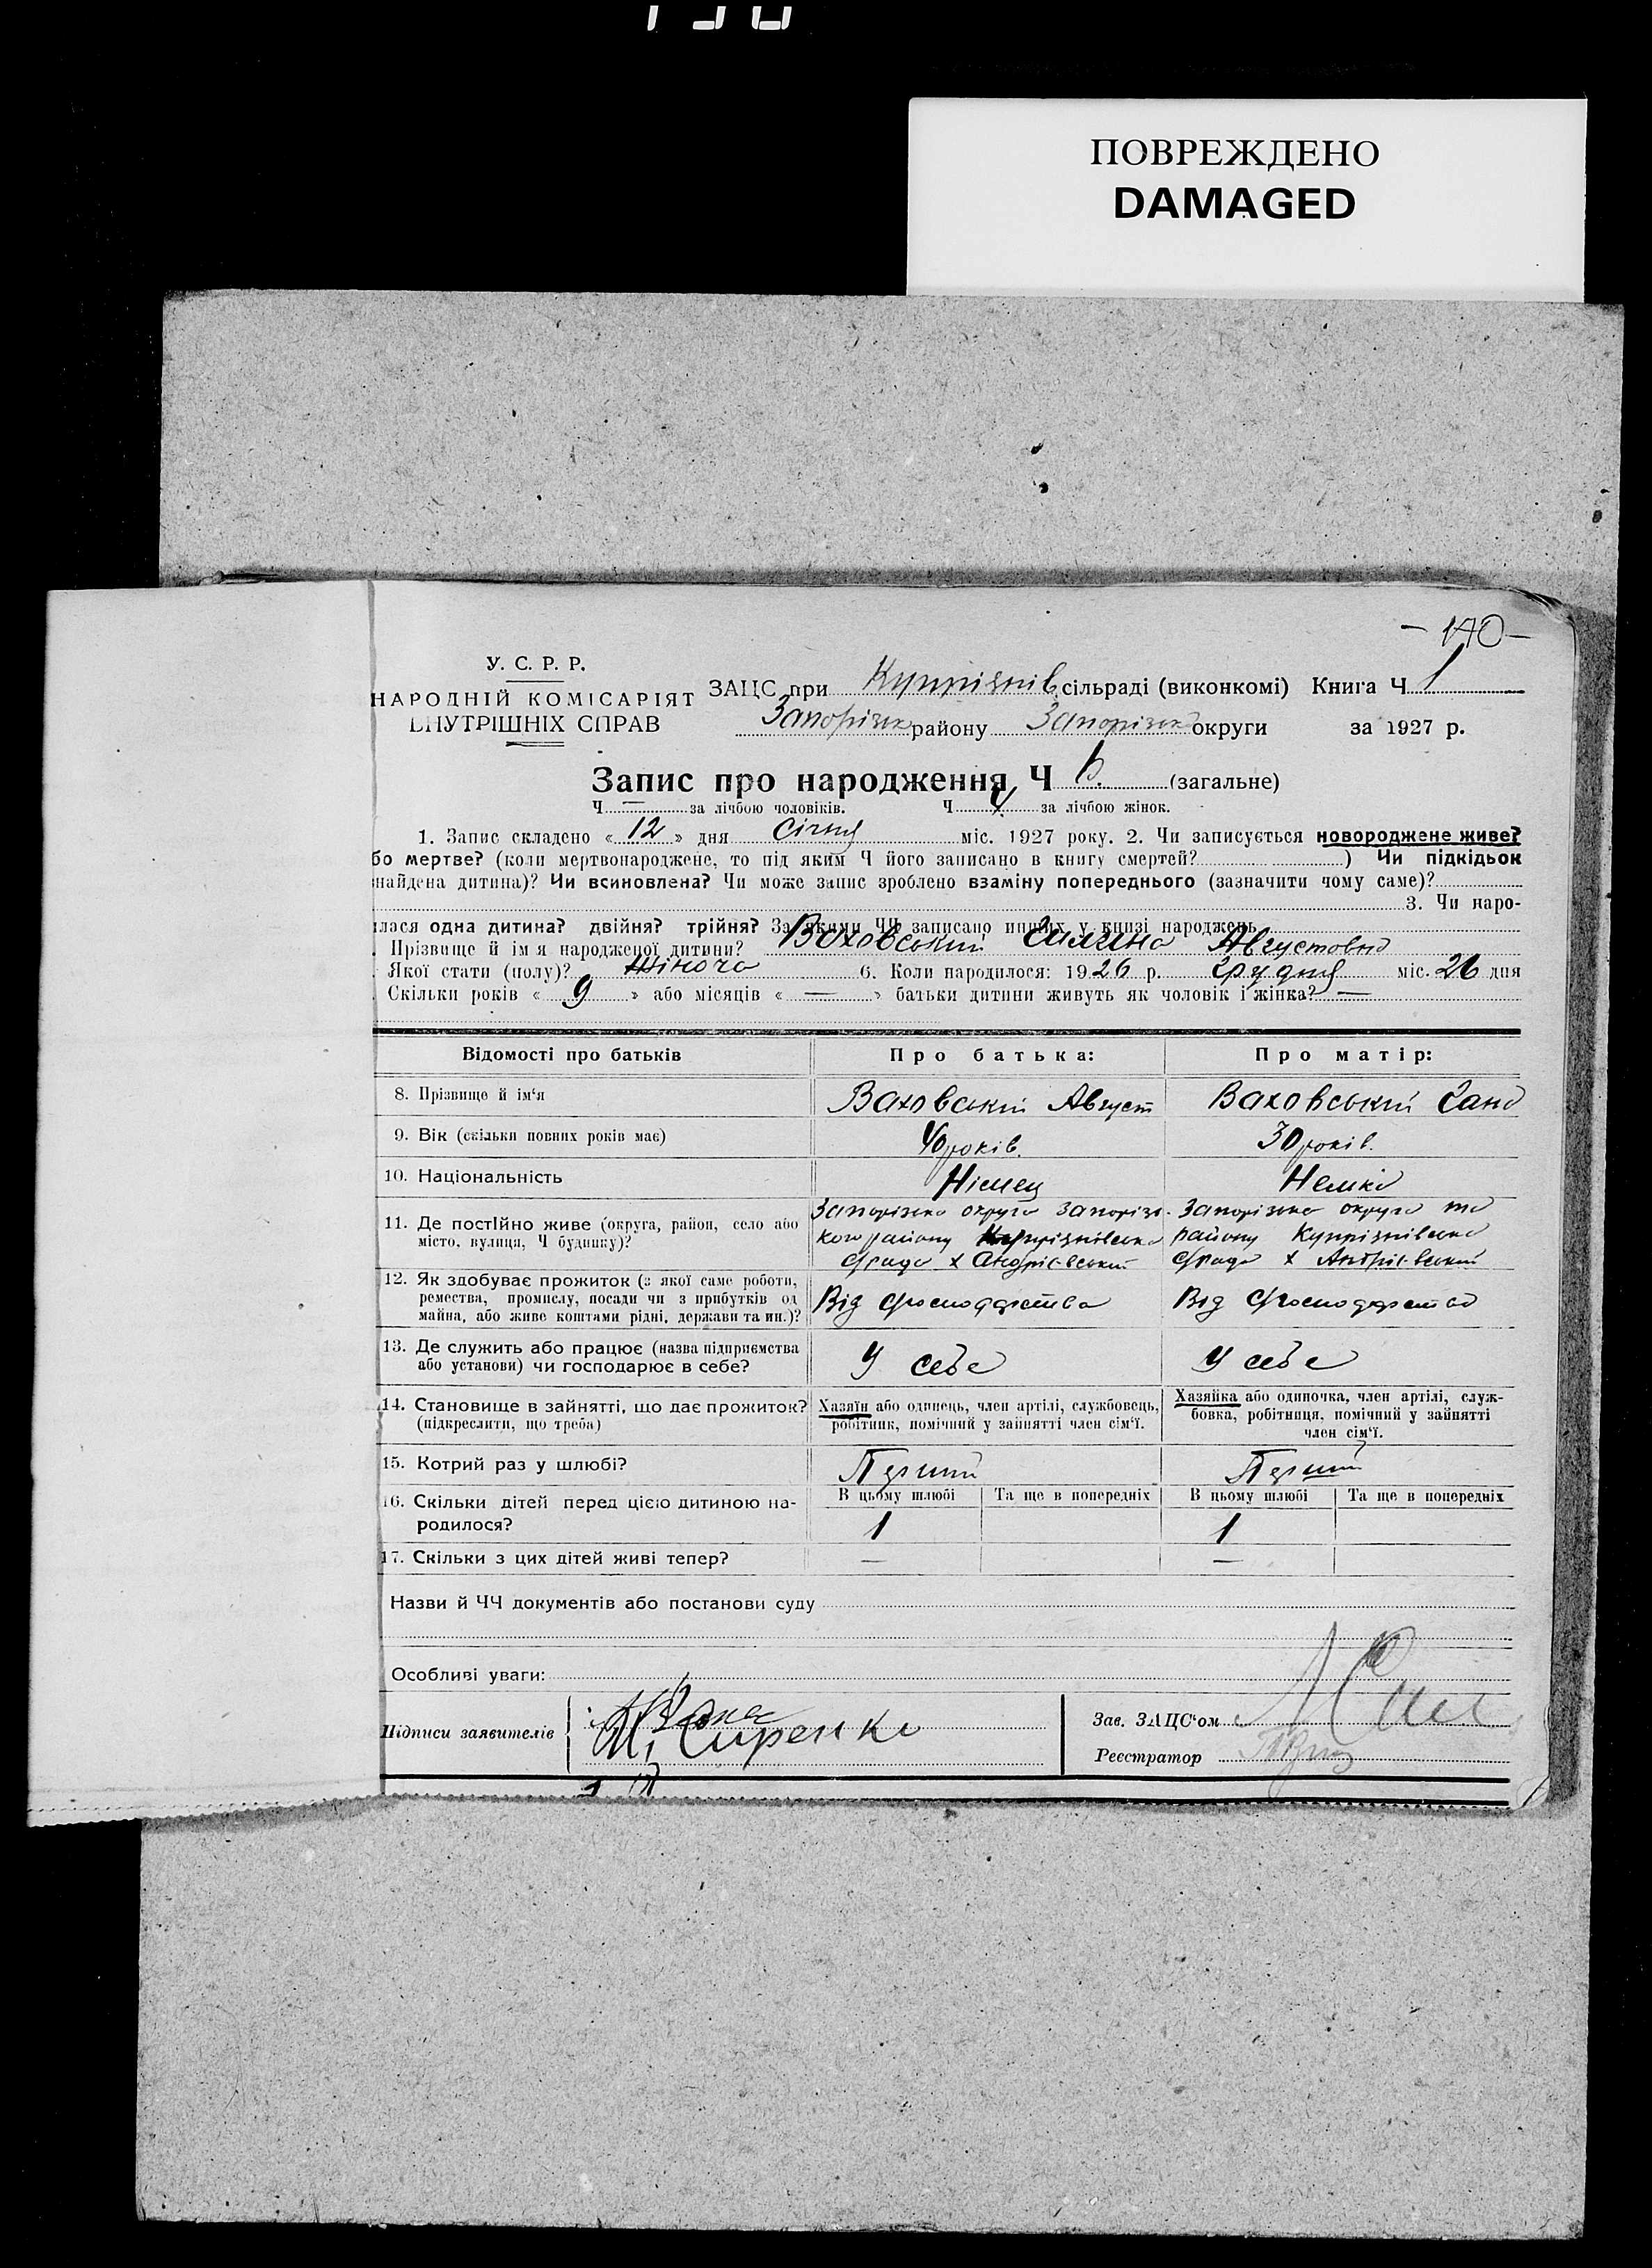 ПОВРЕЖДЕНО
DAMAGED
– 170 –
У. С. Р. Р.
НАРОДНІЙ КОМІСАРІЯТ
ВНУТРІШНІХ СПРАВ
ЗАЦС при Куприянів сільраді (виконкомі) Книга Ч 1
Запорізьк району Запорізьк округи за 1927 р.
Запис про народження Ч 6. (загальне)
Ч — за лічбою чоловіків. Ч 4 за лічбою жінок.
1. Запис складено « 12 » дня Січня міс. 1927 року. 2. Чи записується новороджене живе?
бо мертве? (коли мертвонароджене, то під яким Ч його записано в книгу смертей? ) Чи підкідьок
найдена дитина)? Чи всиновлена? Чи може запис зроблено взаміну попереднього (зазначити чому саме)?
3. Чи наро-
лася одна дитина? двійня? трійня? За якими ЧЧ записано инших у книзі народжень
Прізвище й ім я народженої дитини? Ваховський Августовна
Якої стати (полу)? Жіноча 6. Коли народилося: 1926 р. Грудня міс. 26 дня
Скільки років « 9 » або місяців « — » батьки дитини живуть як чоловік і жінка? —
Відомості про батьків Про батька: Про матір:
8. Прізвище й ім‘я Ваховський Август Ваховський
9. Вік (скільки повних років має) 40 років. 30 років.
10. Національність Німец Немка
11. Де постійно живе (округа, район, село або місто, вулиця, Ч будинку)?
Запорізька округа Запорізь-
кого району
х Андріевський
Запорізька округа
району
х Андріевський
12. Як здобуває прожиток (з якої саме роботи, ремества, промислу, посади чи з прибутків од майна, або живе коштами рідні, держави та ин.)? Від Господарства Від Господарства
13. Де служить або працює (назва підприємства або установи) чи господарює в себе? У себе У себе
14. Становище в зайнятті, що дає прожиток? (підкреслити, що треба)
Хазяїн або одинець, член артілі, службовець, робітник, помічний у зайнятті член сім‘ї.
Хазяйка або одиночка, член артілі, служ-
бовка, робітниця, помічний у зайнятті
член сім‘ї.
15. Котрий раз у шлюбі? Перший Перший
16. Скільки дітей перед цією дитиною на-
родилося?
В цьому шлюбі Та ще в попередніх В цьому шлюбі Та ще в попередніх
1 1
17. Скільки з цих дітей живі тепер? — —
Назви й ЧЧ документів або постанови суду
Особливі уваги:
Підписи заявителів
Зав. ЗАЦС‘ом
Реєстратор